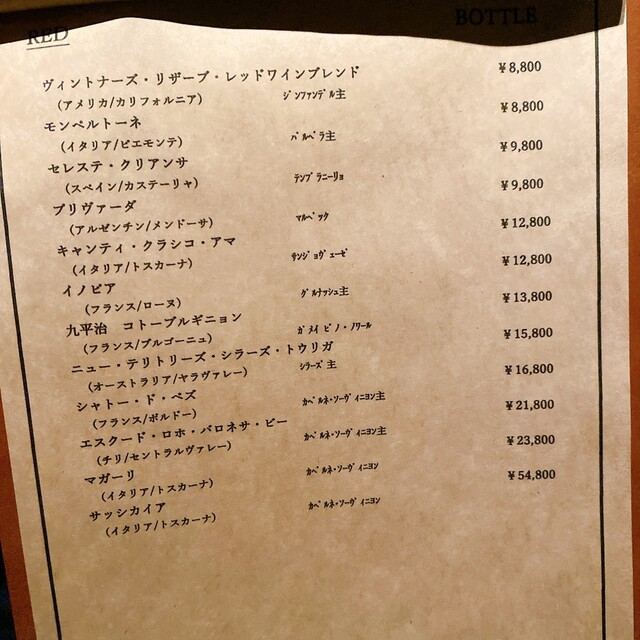 RED BOTTLE
ヴィントナーズ・リザーブ・レッドワインブレンド ¥8,800
(アメリカ/カリフォルニア) ジンファンデル主
モンペルトーネ ¥8,800
(イタリア/ピエモンテ) バルベラ主
セレステ・クリアンサ ¥9,800
(スペイン/カステーリャ) テンプラニーリョ
プリヴァーダ ¥9,800
(アルゼンチン/メンドーサ) マルベック
キャンティ・クラシコ・アマ ¥12,800
(イタリア/トスカーナ) サンジョヴェーゼ
イノピア ¥12,800
(フランス/ローヌ) グルナッシュ主
九平治 コトーブルギニョン ¥13,800
(フランス/ブルゴーニュ) ガメイ ピノ・ノワール
ニュー・テリトリーズ・シラーズ・トウリガ ¥15,800
(オーストラリア/ヤラヴァレー) シラーズ主
シャトー・ド・ペズ ¥16,800
(フランス/ボルドー) カベルネ・ソーヴィニヨン主
エスクード・ロホ・バロネサ・ピー ¥21,800
(チリ/セントラルヴァレー) カベルネ・ソーヴィニヨン主
マガーリ ¥23,800
(イタリア/トスカーナ) カベルネ・ソーヴィニヨン
サッシカイア ¥54,800
(イタリア/トスカーナ) カベルネ・ソーヴィニヨン